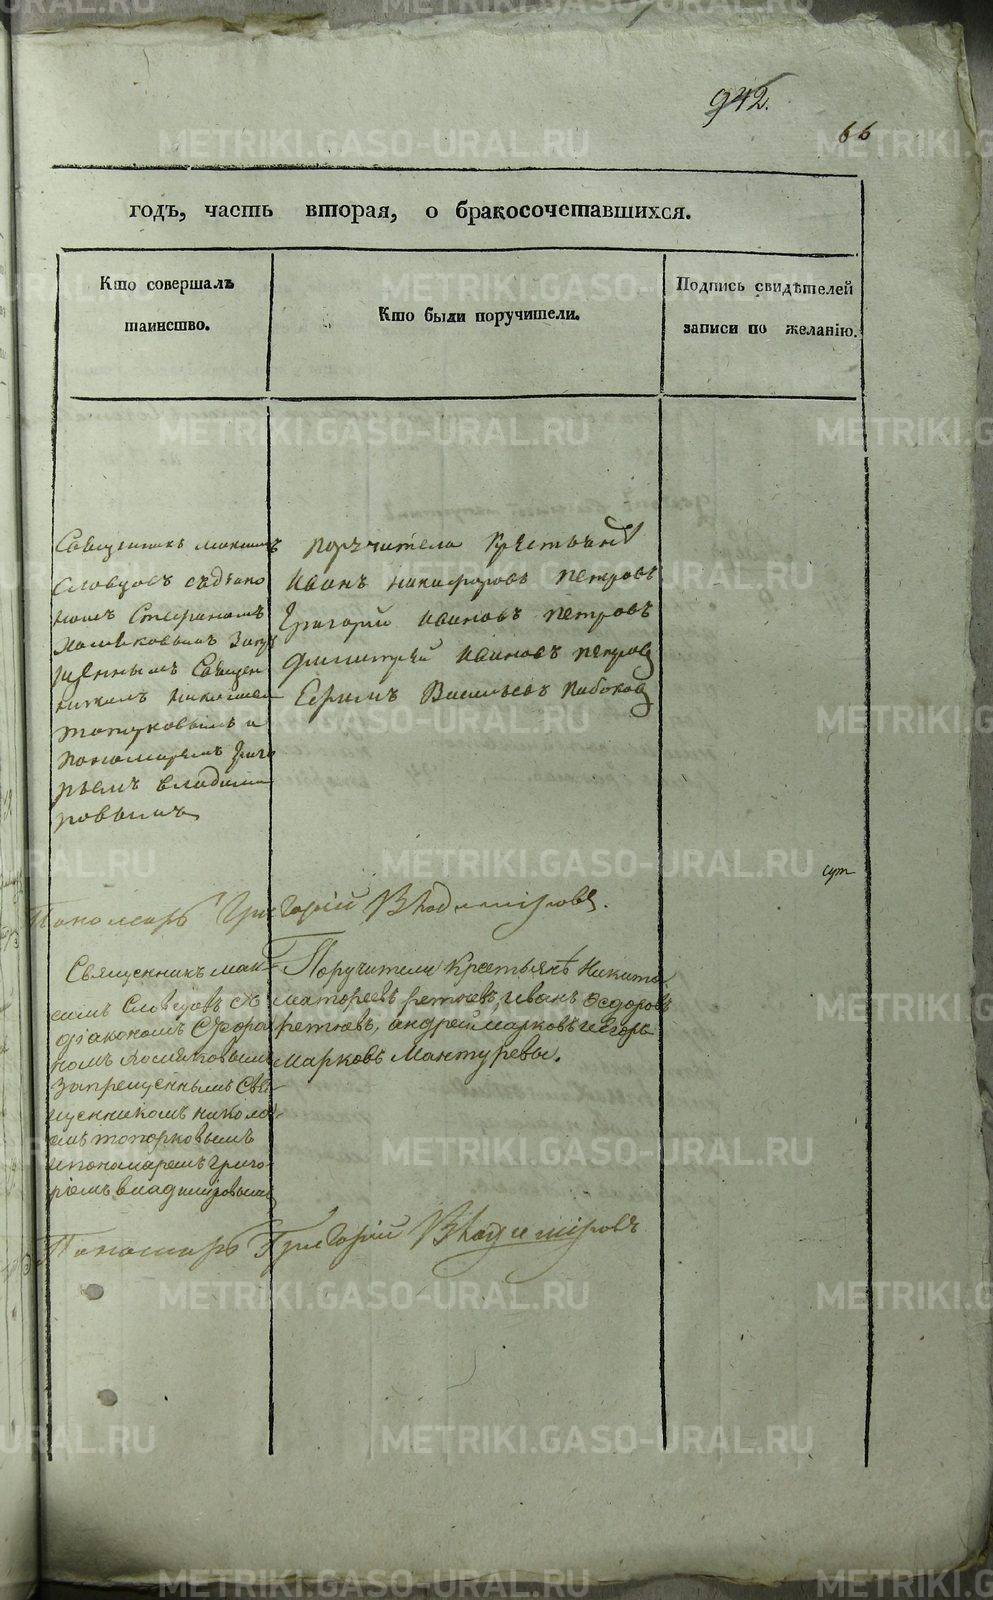 942.
66
годъ, часть вторая, о бракосочетавшихся.
Кто совершалъ
таинство.
Кто были поручители.
Подпись свидѣтелей
записи по желанію.
Священникъ
Словцовъ съ діако
номъ Стефаномъ
Хомяковымъ Запр
щеннымъ Священ
никомъ Николаем
топорковымъ и
Пономаремъ Григо
рьемъ владими
ровымъ
поручители Крестьян
Иванъ никифоровъ петровъ
Григорий Ивановъ петровъ
Дмитрей Ивановъ петровъ
Ефимъ Васильевъ
Пономарь Григорій Владиміровъ.
Священникъ мак-
симъ Словцовъ съ
діакономъ Стефа
номъ Хомяковымъ
Запрещеннымъ Свя-
щенникомъ никола-
емъ топорковымъ
ипономаремъ Григо-
ріемъ владиміровымъ
Поручители Крестьянѣ Никита
иванъ Ѳедоровъ
андрей марковъ иегоръ
марковъ Мантуревы.
Пономарь Григорій Владиміровъ
METRIKI.GASO-URAL.RU